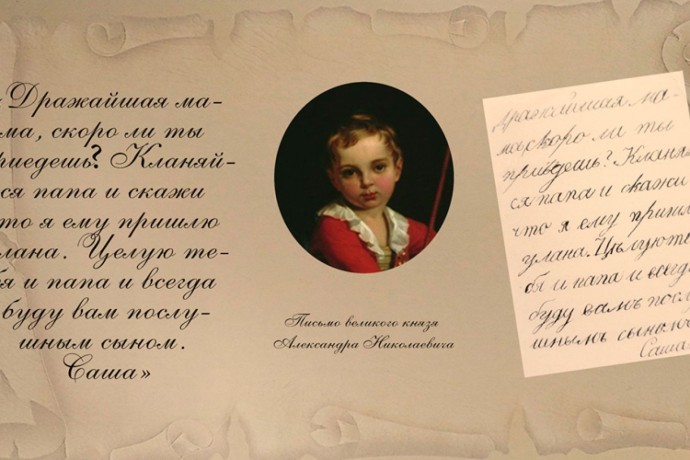 «Дражайшая ма-
ма, скоро ли ты
приедешь? Кланяй-
ся папа и скажи
то я ему пришлю
лана. Целую те-
бя и папа и всегда
буду вам послу-
шным сыном.
Саша»
Письмо великого князя
Александра Николаевича
Дражайшая ма-
ма, скоро ли ты
приѣдешь? Кланя
ся папа и скажи
что я ему приш
улана. Цѣлую те
бя и папа и всег
буду вамъ посл
шнымъ сыномъ
Саша